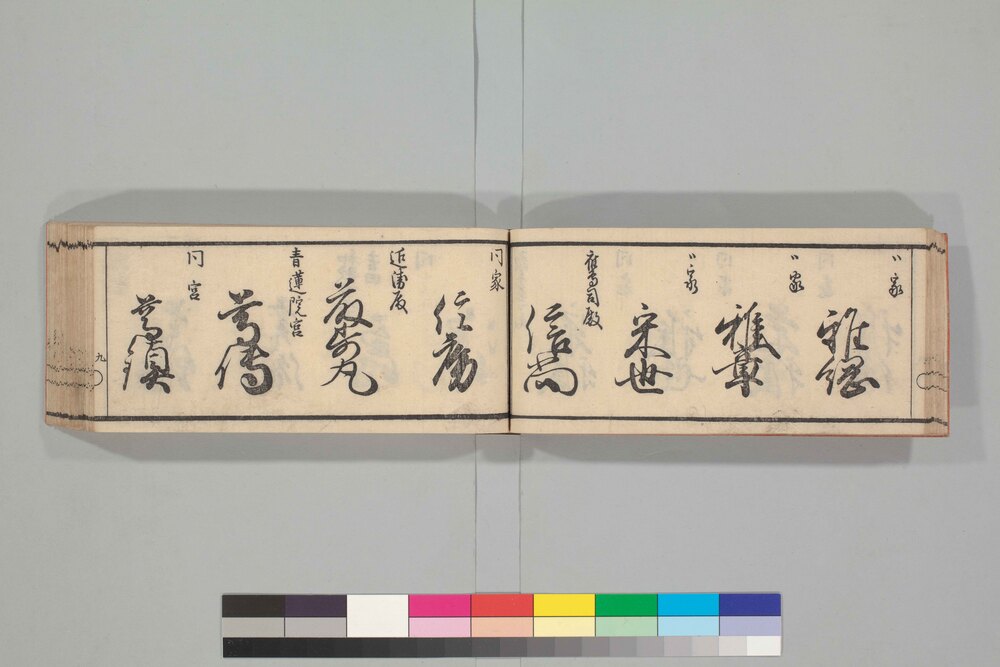 〃家
雅綱
〃家
雅章
〃家
宋世
鷹司殿
信尚
同家
信房
近衛殿
青蓮院宮
尊傳
同宮
尊鎮
九